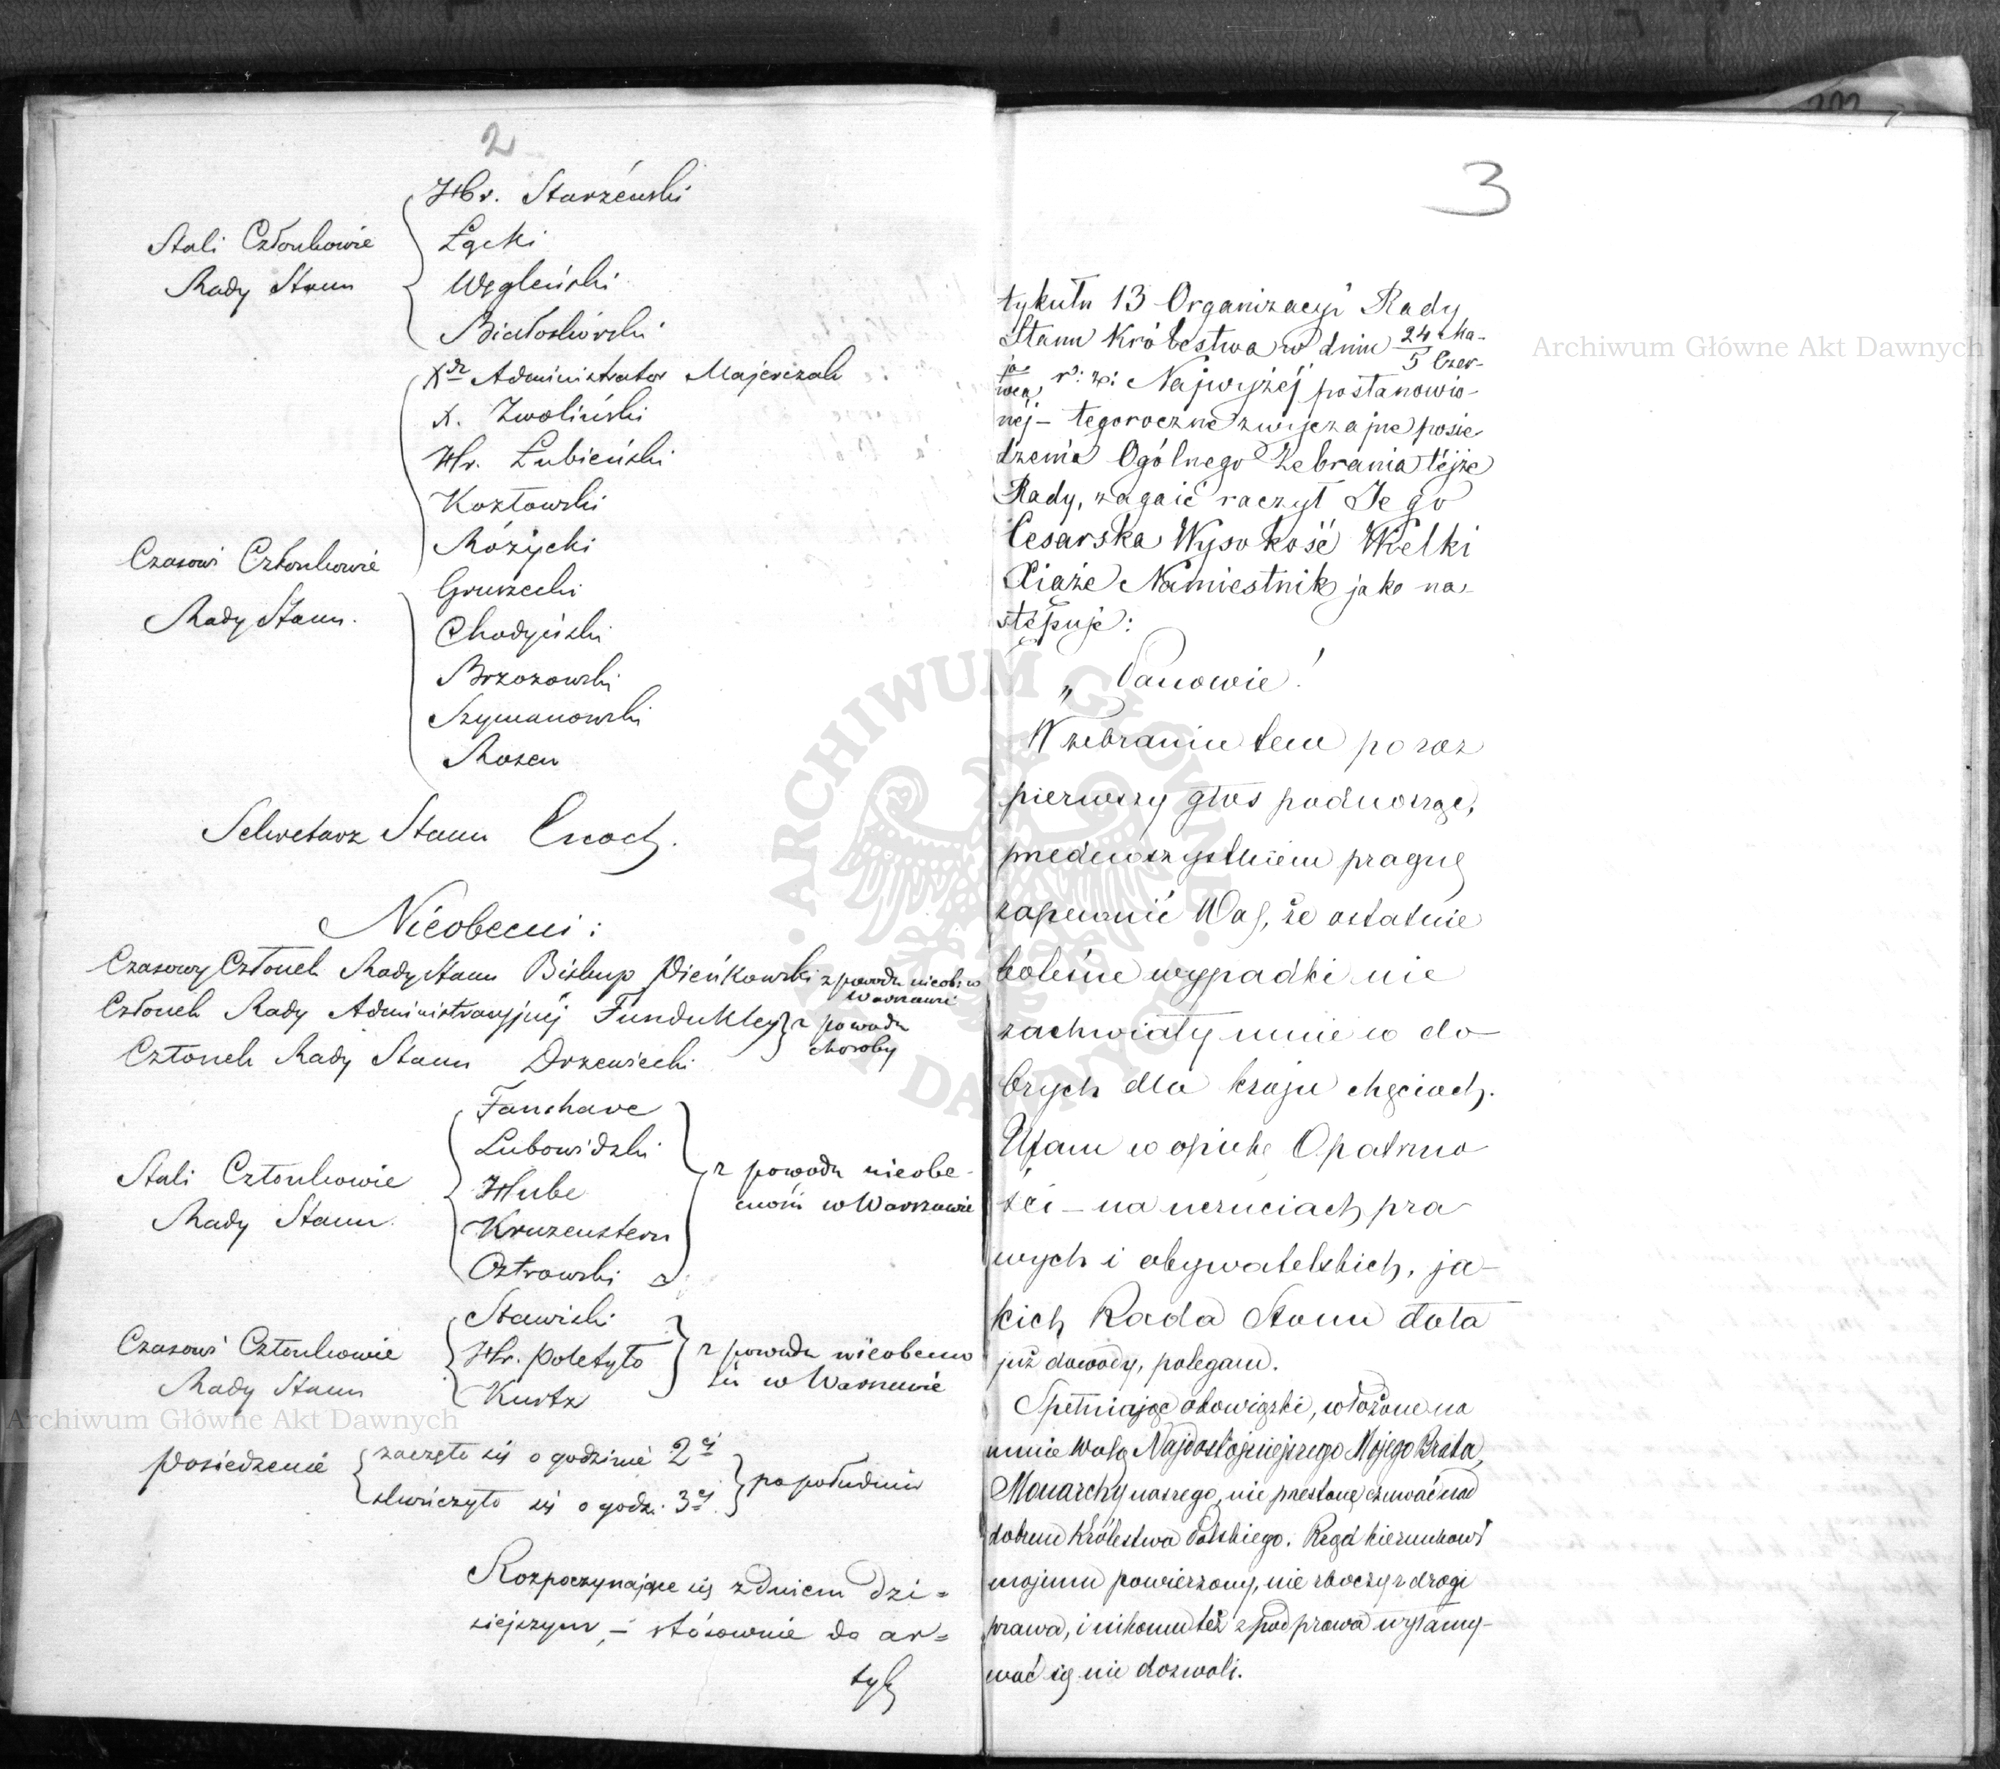 2
Hr. Starzeński
Stali Członkowie
Łącki
Rady Stanu
Węgleński
Białoskórski
Xdz Administrator Majerczak
X. Zwoliński
Hr. Łubieński
Kozłowski
Różycki
Czasowi Członkowie
Gruszecki
Rady Stanu.
Chodyński
Brzozowski
Szymanowski
Rosen
Sekretarz Stanu Enoch.
Nieobecni:
Czasowy Członek Rady Stanu Biskup Pieńkowski z powodu nieob: w
Warszawie
Członek Rady Administracyjnéj Fundukley z powodu
choroby
Członek Rady Stanu Drzewiecki
Fanshave
Lubowidzki
Stali Członkowie
Hube
z powodu nieobe-
Rady Stanu.
Kruzenstern
cności w Warszawie
Ostrowski
Stawiski
Czasowi Członkowie
Hr. Poletyło
z powodu nieobecno
Rady Stanu
Kurtz
ści w Warszawie
Posiedzenie
zaczęto się o godzinie 2éj
popołudniu
skończyło się o godz. 3éj
Rozpoczynające się z dniem dzi=
siejszym, – stósownie do ar=
tyk
3
tykułu 13 Organizacyi Rady
Stanu Królestwa w dniu 24 Ma-
ja
5 Czer-
wca, r: z: Najwyżéj postanowio-
néj – tegoroczne zwyczajne posie
dzenia Ogólnego Zebrania téjże
Rady, zagaić raczył Jego
Cesarska Wysokość Wielki
Xiąże Namiestnik jako na-
stępuje:
„Panowie!
W zebraniu tem po raz
pierwszy głos podnosząc,
przedewszystkiem pragnę
zapewnić Was, że ostatnie
boleśne wypadki nie
zachwiały mnie w do-
brych dla kraju chęciach.
Ufam w opiekę Opatrzno
ści – na uczuciach pra
wych i obywatelskich, ja-
kich Rada Stanu dała
już dowody, polegam.
Spełniając obowiązki, włożone na
mnie wolą Najdostojniejszego Mojego Brata,
Monarchy naszego, nie przestanę czuwać nad
dobrem Królestwa Polskiego. Rząd kierunkowi
mojemu powierzony, nie zboczy z drogi
prawa, i nikomu téż z pod prawa wyłamy-
wać się nie dozwoli.
Archiwum Główne Akt Dawnych
Archiwum Główne Akt Dawnych
ARCHIWUM GŁÓWNE AKT DAWNYCH